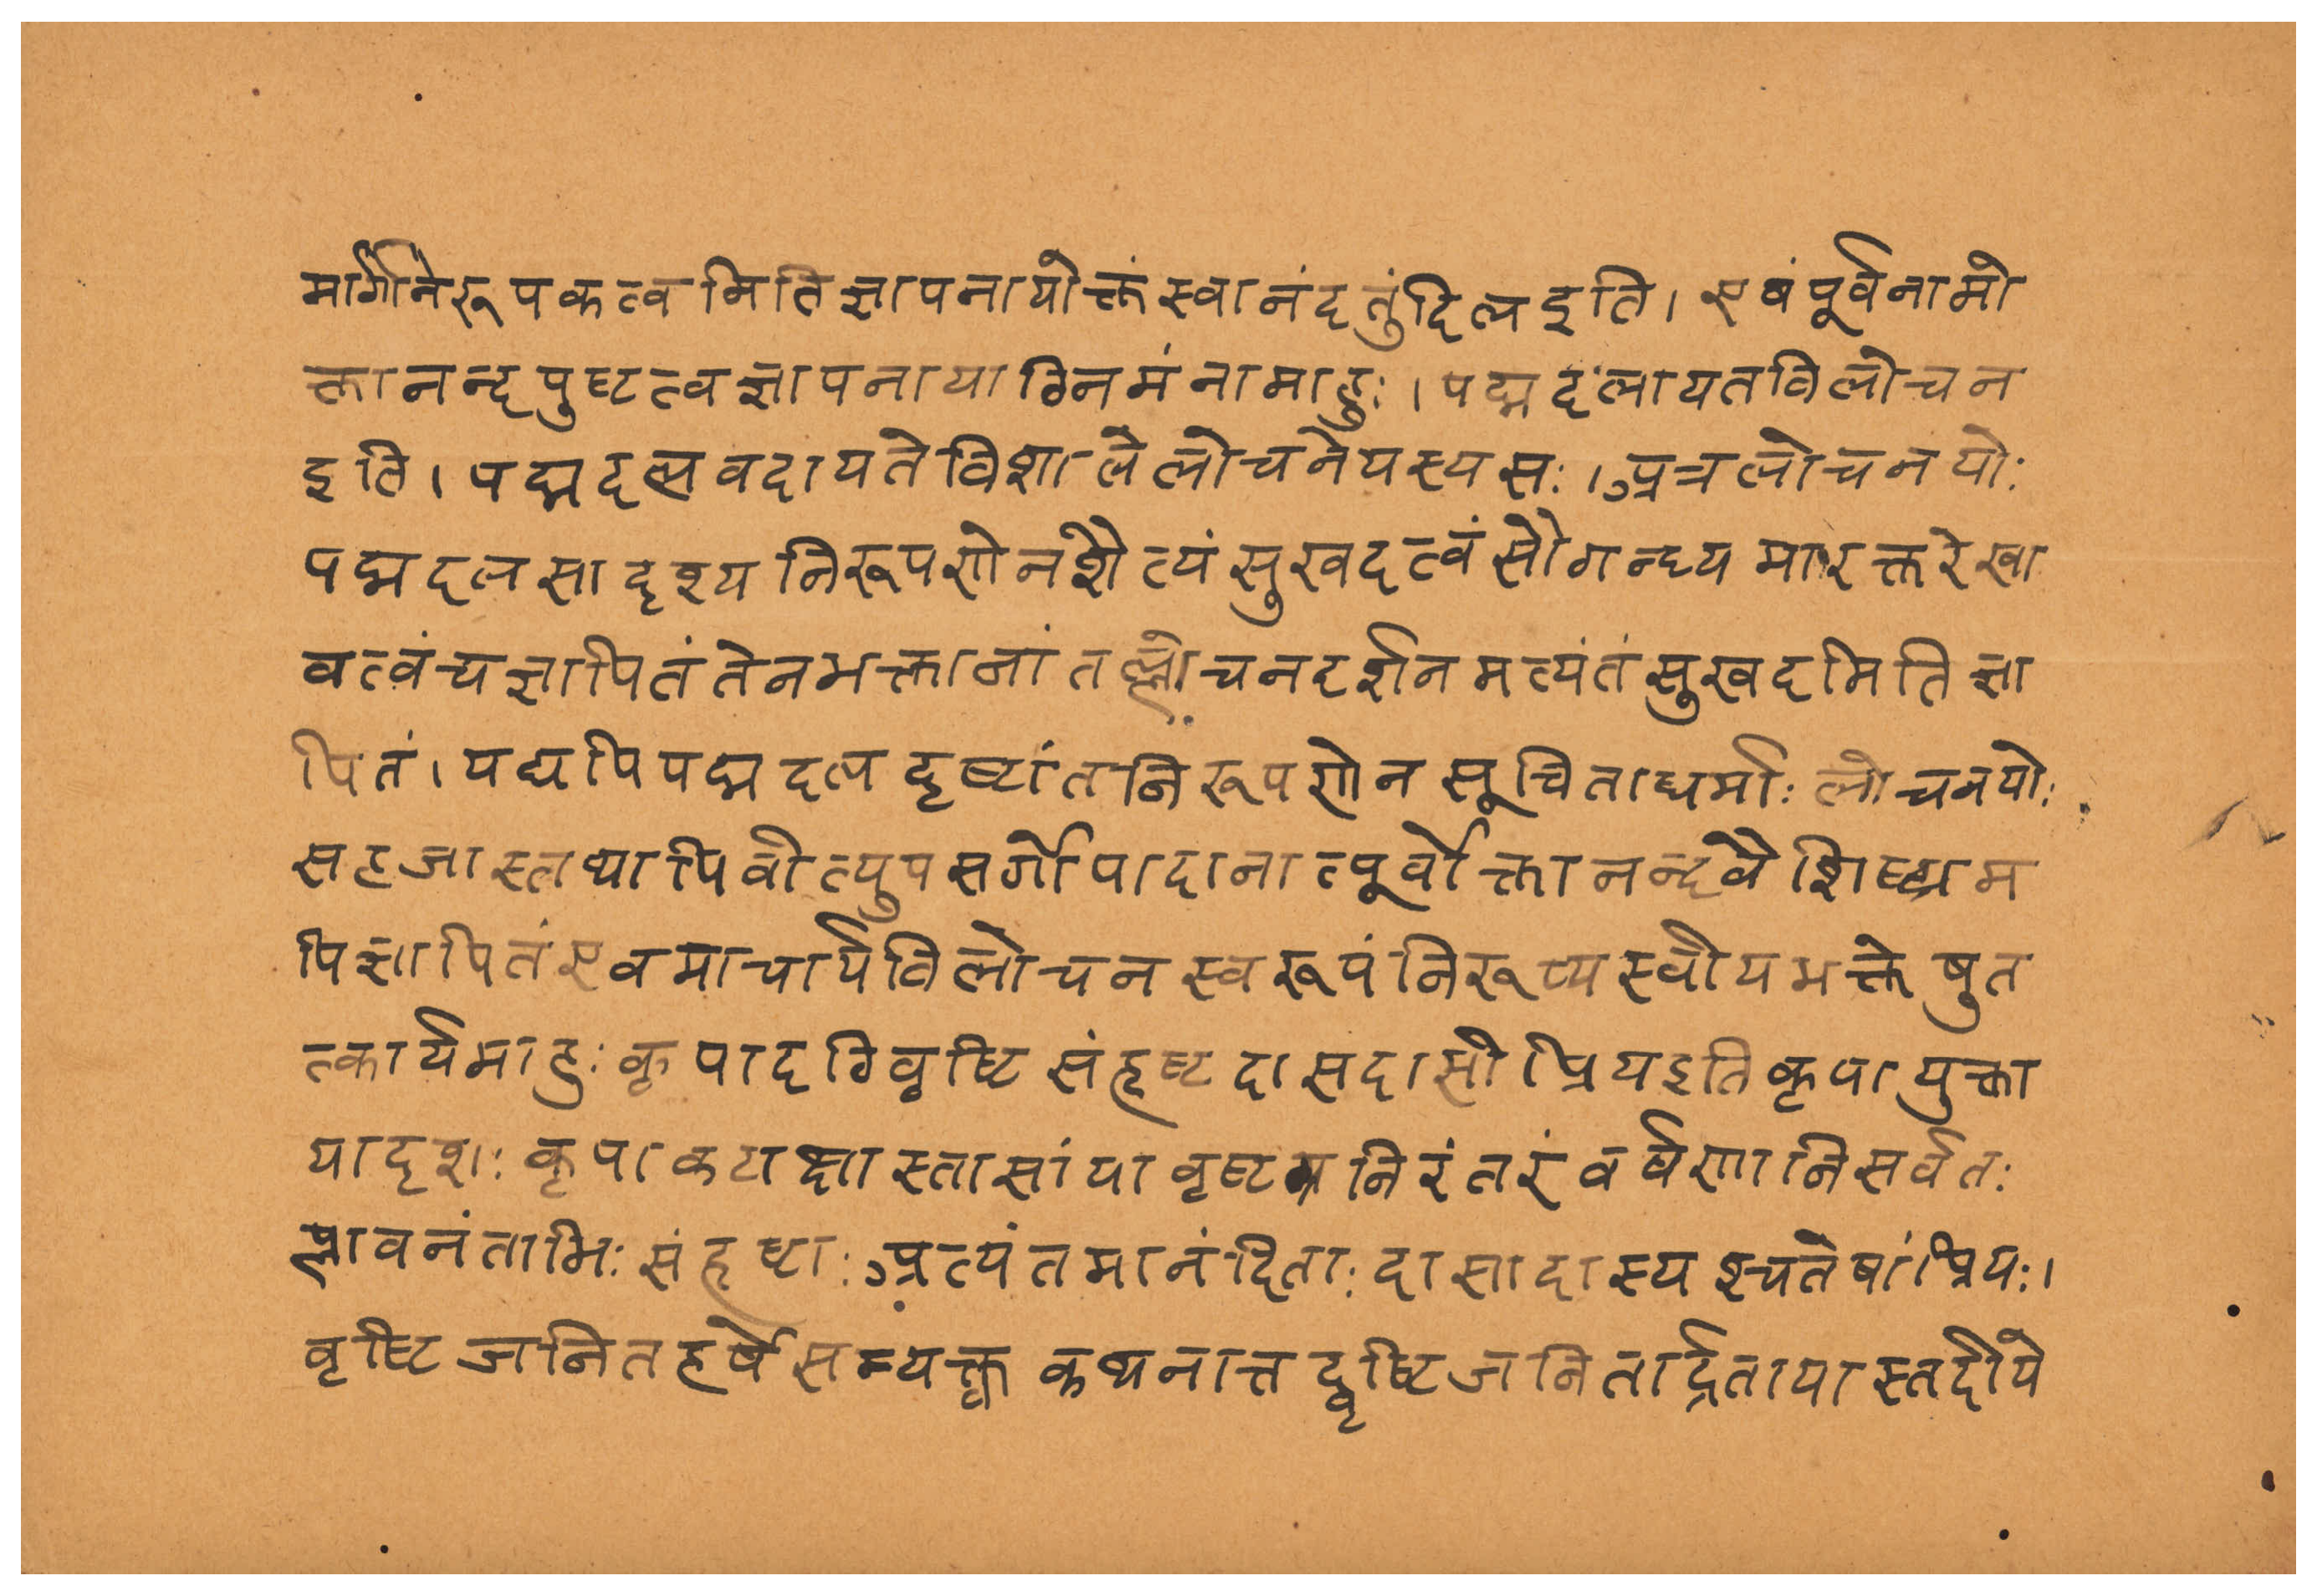 मार्गनिरूपकत्वमिति ज्ञापनायोक्तं स्वानंदतुंदिल इति । एवं पूर्वनामो
क्तानन्दपुष्टत्वज्ञापनायाग्रिमं नामाहुः । पद्मदलायतविलोचन
इति । पद्मदलवदायते विशाले लोचने यस्य सः । अत्र लोचनयोः
पद्मदलसादृश्यनिरूपणेन शैत्यं सुखदत्वं सौगन्ध्यमारक्तरेखा
वत्वं च ज्ञापितं तेन भक्तानां तल्लोचनदर्शनमत्यंतं सुखदमिति ज्ञा
पितं । यद्यपि पद्मदलदृष्टांतनिरूपणेन सूचिता धर्माः लोचनयोः
सहजास्तथापि वीत्युपसर्गोपादानात्पूर्वोक्तानन्दवैशिष्ट्यम
पि ज्ञापितं एवमाचार्यविलोचनस्वरूपं निरूप्य स्वीयभक्तेषु त
त्कार्यमाहुः कृपादृग्वृष्टिसंहृष्टदासदासीप्रिय इति कृपायुक्ता
या दृशः कृपाकटाक्षास्तासां या वृष्टय निरंतरं वर्षणानि सर्वतः
प्लावनं ताभिः संहृष्टाः अत्यंतमानंदिताः दासा दास्यश्च तेषां प्रियः ।
वृष्टिजनितहर्षे सम्यक्त्व कथनात्तद्वृष्टिजनितार्द्रतायास्तदीये